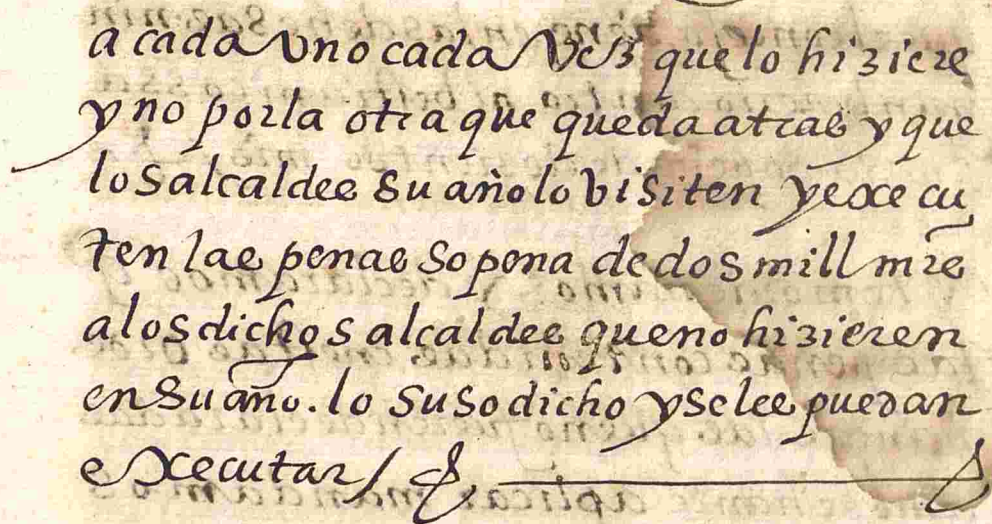 a cada vno cada vez que lo hiziere
y no por la otra que queda atras y que
los alcaldes su año lo visiten y execu
ten las penas so pena de dos mill mrs
a los dichos alcaldes que no hizieren
en su año. lo susodicho y se les puedan
executar /